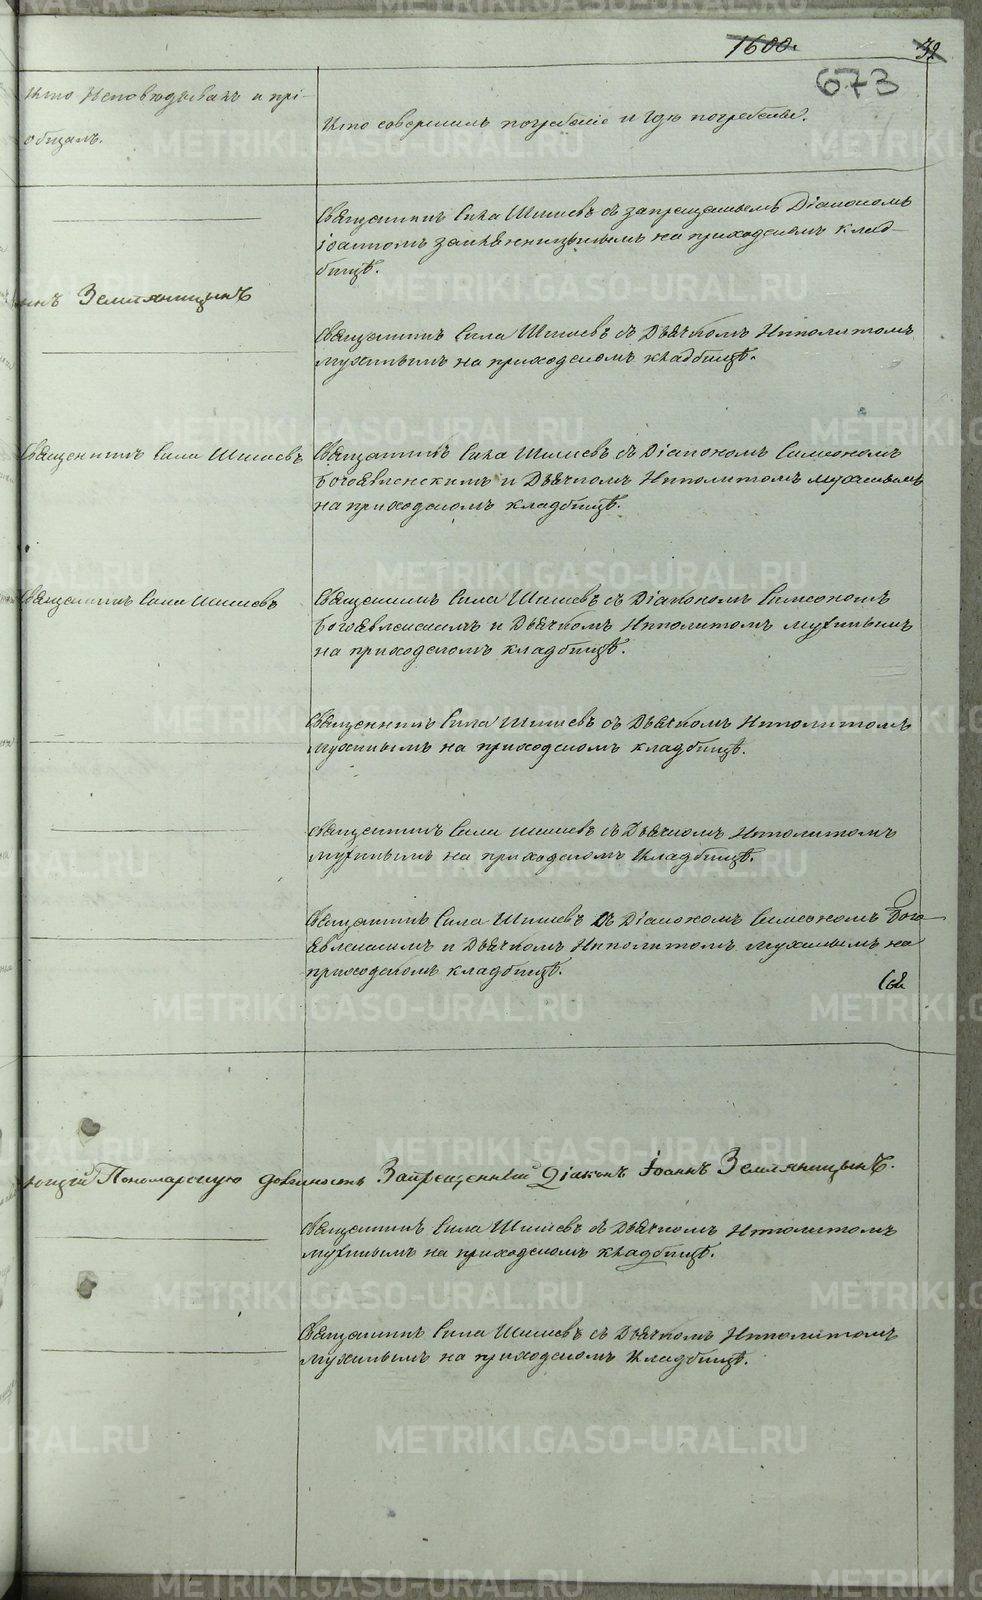 1600.
32
673
Кто Исповѣдывалъ и прі-
общалъ.
Кто совершилъ погребеніе и гдѣ погребены.
Священникъ Сила Шишевъ съ запрещеннымъ Діакономъ
Іоанномъ Земляницынымъ на приходскомъ клад-
бищѣ.
инъ Земляницынъ
Священникъ Сила Шишевъ съ Дьячкомъ Ипполитомъ
Мухинымъ на приходскомъ кладбищѣ.
Священникъ Сила Шишевъ
Священникъ Сила Шишевъ съ Діакономъ Симеономъ
Богоявленскимъ и Дьячкомъ Ипполитомъ Мухинымъ
на приходскомъ кладбищѣ.
Священникъ Сила Шишевъ
Священникъ Сила Шишевъ съ Діакономъ Симеономъ
Богоявленскимъ и Дьячкомъ Ипполитомъ Мухинымъ
на приходскомъ кладбищѣ.
Священникъ Сила Шишевъ съ Дьячкомъ Ипполитомъ
Мухинымъ на приходскомъ кладбищѣ.
Священникъ Сила Шишевъ съ Дьячкомъ Ипполитомъ
Мухинымъ на приходскомъ кладбищѣ.
Священникъ Сила Шишевъ съ Діакономъ Симеономъ Бого-
явленскимъ и Дьячкомъ Ипполитомъ Мухинымъ на
приходскомъ кладбищѣ.
ющій Пономарскую должность Запрещенный Діаконъ Іоаннъ Земляницынъ.
Священникъ Сила Шишевъ съ Дьячкомъ Ипполитомъ
Мухинымъ на приходскомъ кладбищѣ.
Священникъ Сила Шишевъ съ Дьячкомъ Ипполитомъ
Мухинымъ на приходскомъ кладбищѣ.
METRIKI.GASO-URAL.RU